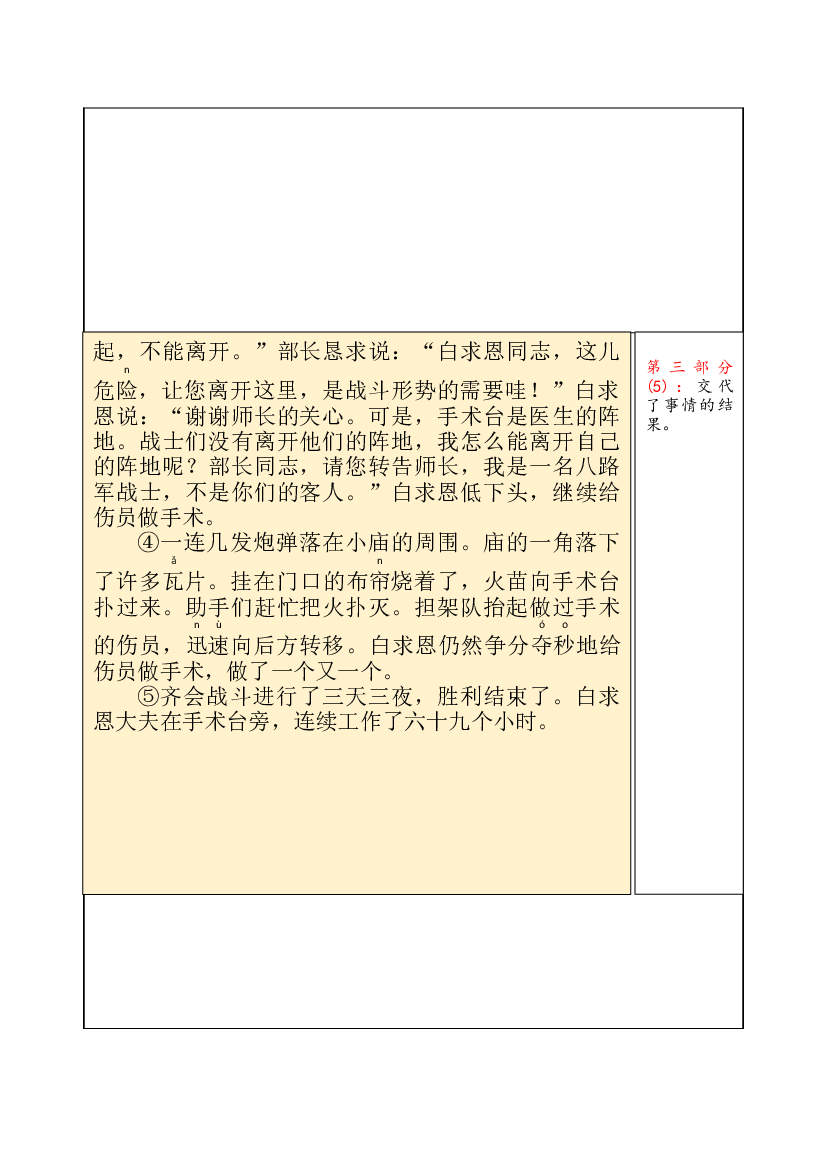 起，不能离开。”部长恳求说：“白求恩同志，这儿
n
危险，让您离开这里，是战斗形势的需要哇！”白求
恩说：“谢谢师长的关心。可是，手术台是医生的阵
地。战士们没有离开他们的阵地，我怎么能离开自己
的阵地呢？部长同志，请您转告师长，我是一名八路
军战士，不是你们的客人。”白求恩低下头，继续给
伤员做手术。
④一连几发炮弹落在小庙的周围。庙的一角落下
ǎ n
了许多瓦片。挂在门口的布帘烧着了，火苗向手术台
扑过来。助手们赶忙把火扑灭。担架队抬起做过手术
n ù ó o
的伤员，迅速向后方转移。白求恩仍然争分夺秒地给
伤员做手术，做了一个又一个。
⑤齐会战斗进行了三天三夜，胜利结束了。白求
恩大夫在手术台旁，连续工作了六十九个小时。
第三部分
(5)：交代
了事情的结
果。